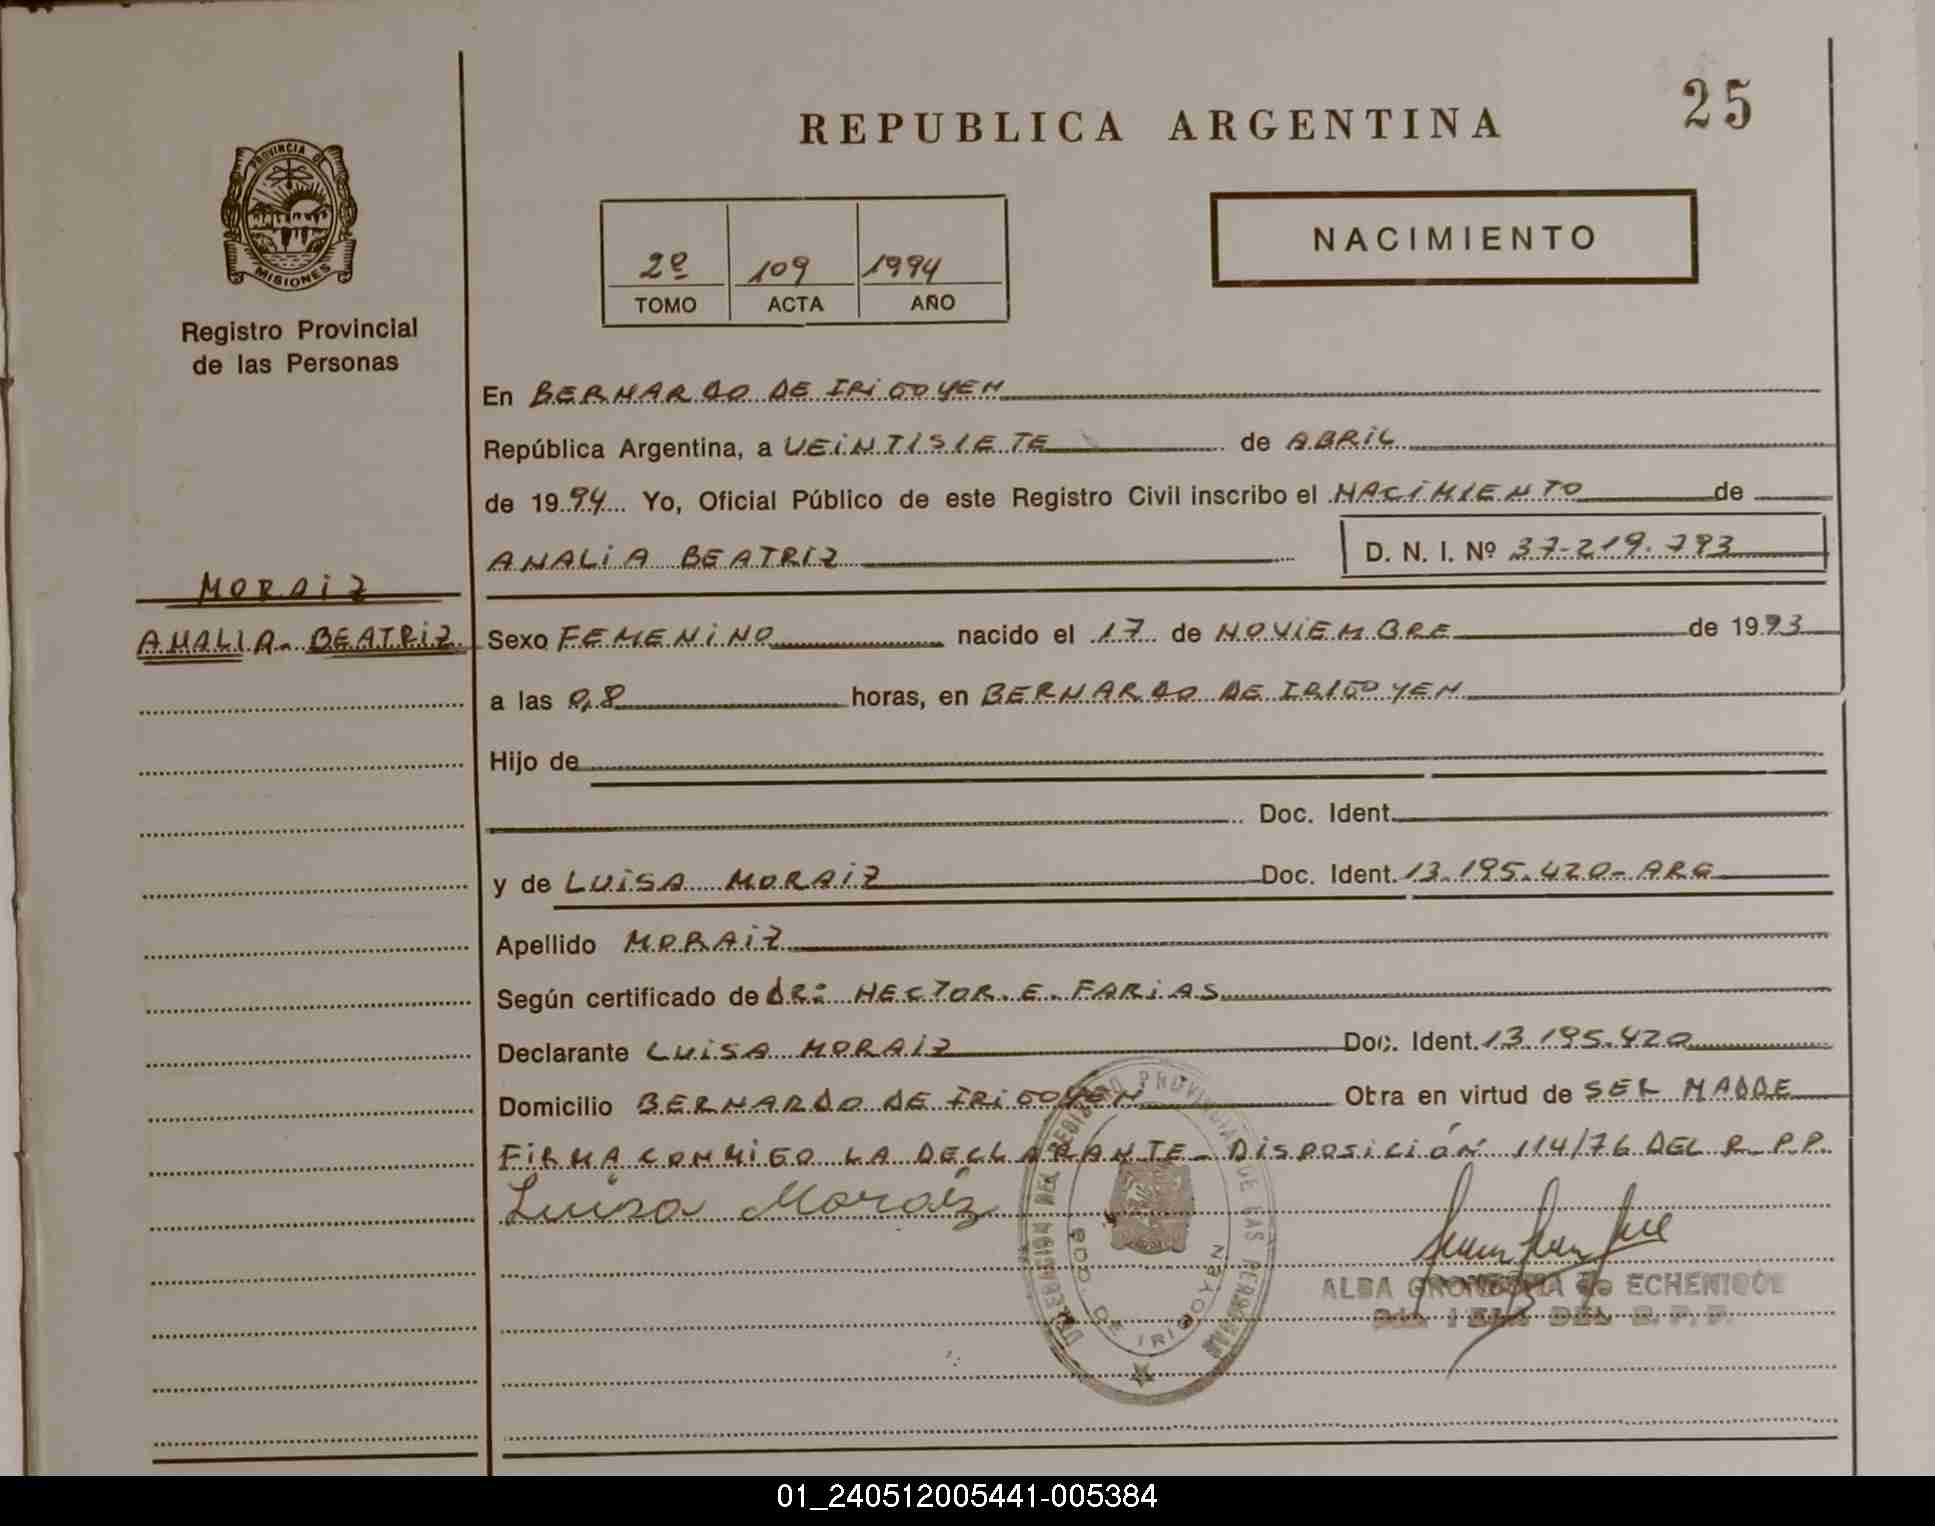 REPUBLICA ARGENTINA
25
PROVINCIA DE
MISIONES
Registro Provincial
de las Personas
2º 109 1994
TOMO ACTA AÑO
NACIMIENTO
MORAIZ
ANALIA - BEATRIZ
En BERNARDO DE IRIGOYEN
República Argentina, a VEINTISIETE de ABRIL
de 1994 Yo, Oficial Público de este Registro Civil inscribo el NACIMIENTO de
ANALIA BEATRIZ D. N. I. Nº 37-219.793
Sexo FEMENINO nacido el 17 de NOVIEMBRE de 1993
a las 0,8 horas, en BERNARDO DE IRIGOYEN
Hijo de
Doc. Ident.
y de LUISA MORAIZ Doc. Ident. 13.195.420- ARG
Apellido MORAIZ
Según certificado de DR: HECTOR. E. FARIAS
Declarante LUISA MORAIZ Doc. Ident. 13.195.420
Domicilio BERNARDO DE IRIGOYEN Obra en virtud de SER MADRE
FIRMA CONMIGO LA DECLARANTE - DISPOSICIÓN 114/76 DEL R.P.P.
Luisa Moraiz
REGISTRO PROVINCIAL DE LAS PERSONAS
BDO. DE IRIGOYEN
ALBA de ECHENIQUE
DEL R.P.P.
01_240512005441-005384